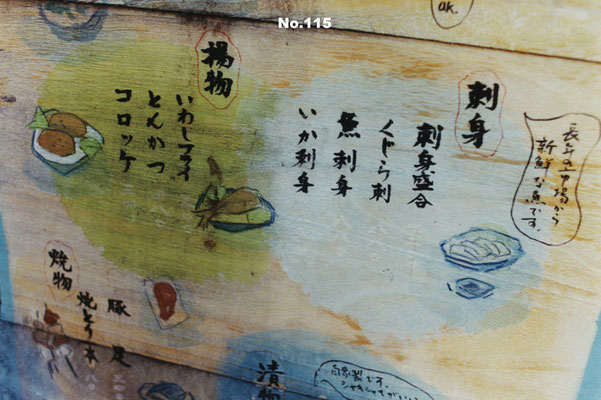 No.115
ok.
刺身
刺身盛合
くじら刺
魚刺身
いか刺身
長年の市場から
新鮮な魚です。
揚物
いわしフライ
とんかつ
コロッケ
焼物
豚足
漬物
自家製です。